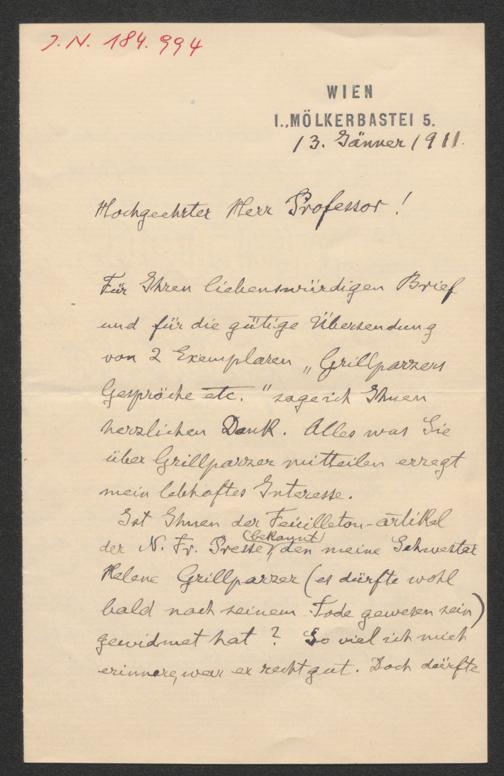 J. N. 184.994
WIEN
I., MÖLKERBASTEI 5.
13. Jänner 1911.
Hochgeehrter Herr Professor!
Für Ihren liebenswürdigen Brief
und für die gütige Übersendung
von 2 Exemplaren „Grillparzers
Gespräche etc." sage ich Ihnen
herzlichen Dank. Alles was Sie
über Grillparzer mitteilen erregt
mein lebhaftes Interesse.
Ist Ihnen der Feuilleton-artikel
(bekannt)
der N. Fr. Presse, den meine Schwester
Helene Grillparzer (es dürfte wohl
bald nach seinem Tode gewesen sein)
gewidmet hat? So viel ich mich
erinnere, war er recht gut. Doch dürfte